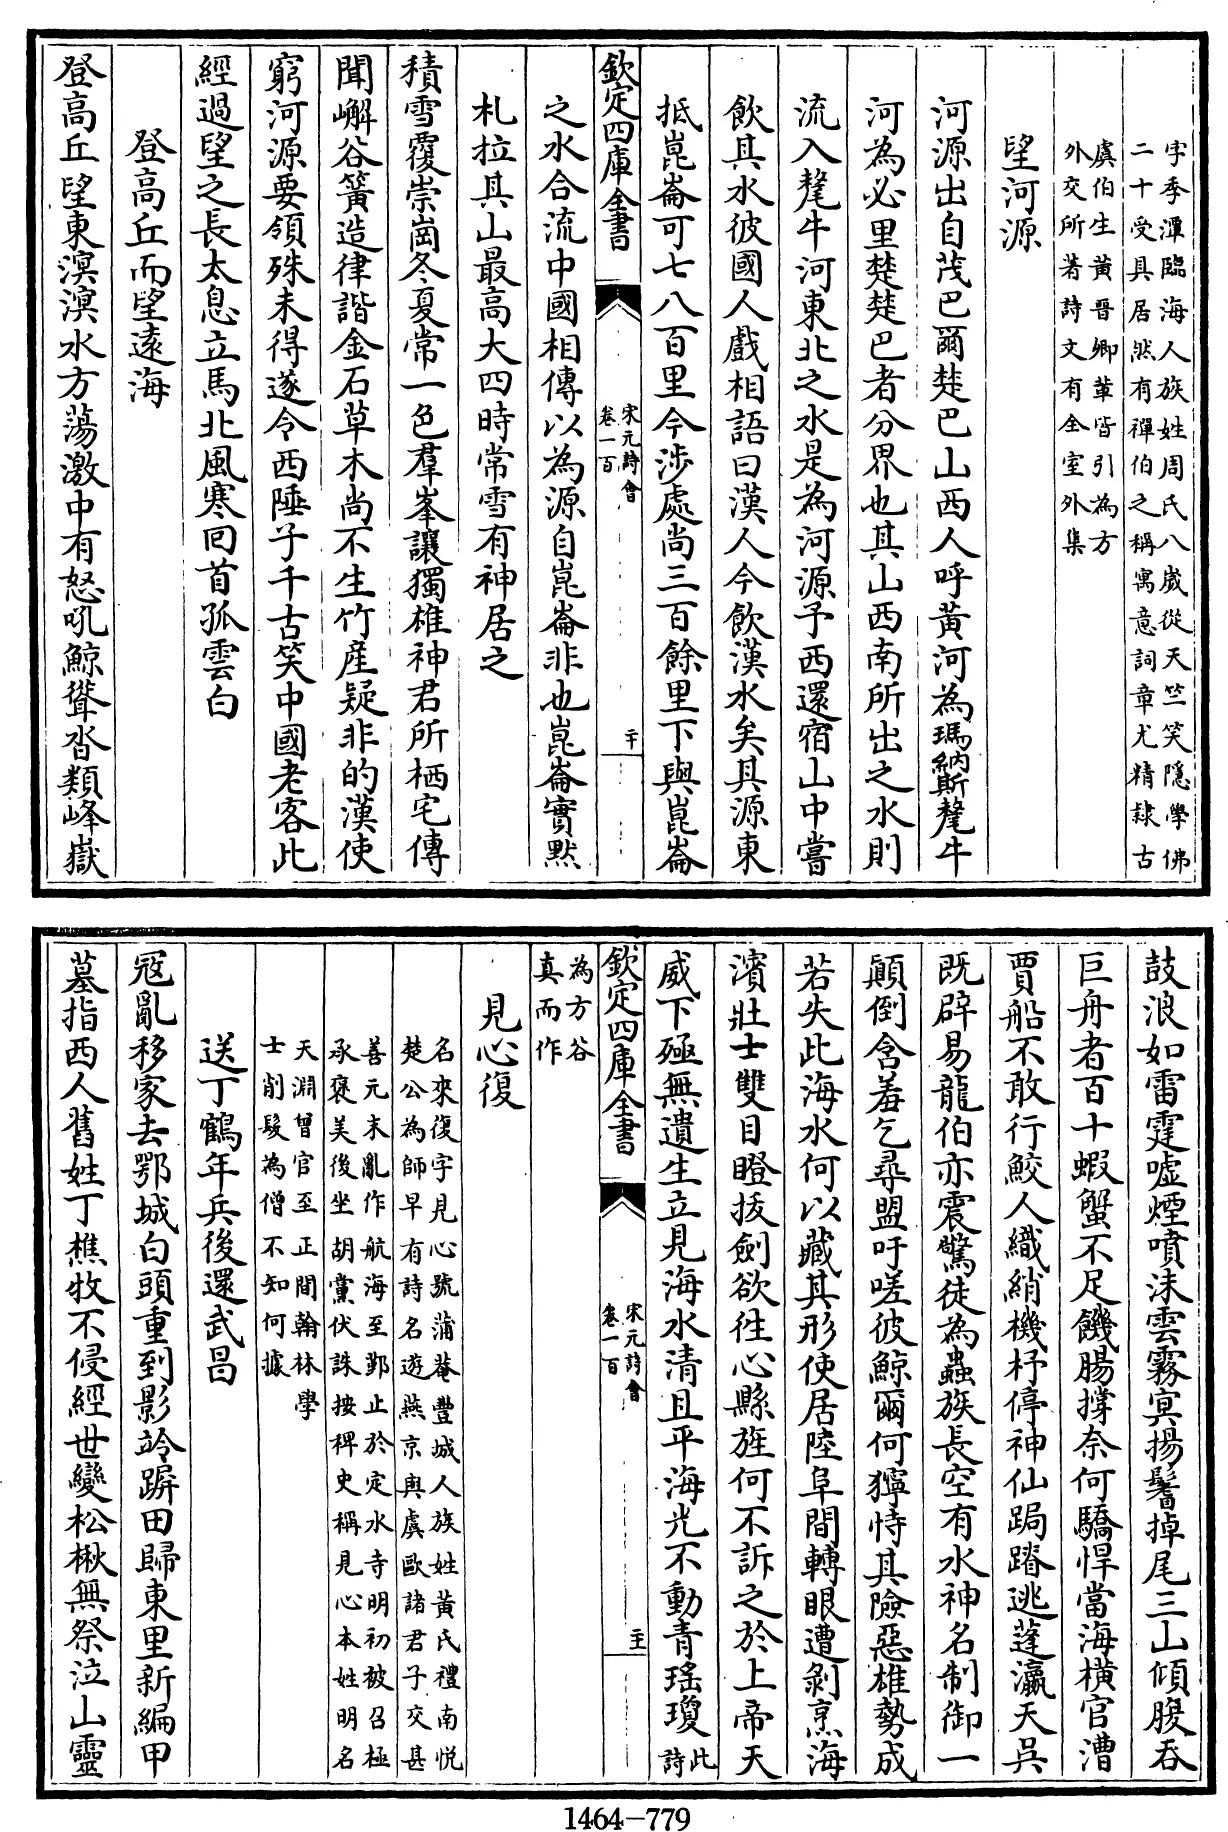 字季潭臨海人族姓周氏八歲從天竺笑隱學佛
二十受具居然有禪伯之稱寓意詞章尤精隸古
虞伯生黄晉卿輩皆引為方
外交所著詩文有全室外集
望河源
河源出自茂巴爾楚巴山西人呼黄河為瑪納斯氂牛
河為必里楚楚巴者分界也其山西南所出之水則
流入氂牛河東北之水是為河源予西還宿山中嘗
飲其水彼國人戲相語曰漢人今飲漢水矣其源東
抵崑崙可七八百里今涉處尚三百餘里下與崑崙
欽定四庫全書
宋元詩會
卷一百
二十
之水合流中國相傳以為源自崑崙非也崑崙實黙
札拉其山最高大四時常雪有神居之
積雪覆崇崗冬夏常一色羣峯讓獨雄神君所栖宅傳
聞嶰谷篁造律諧金石草木尚不生竹産疑非的漢使
窮河源要領殊未得遂令西陲子千古笑中國老客此
經過望之長太息立馬北風寒回首孤雲白
登高丘而望遠海
登高丘望東溟溟水方蕩激中有怒吼鯨聳沓類峰嶽
鼓浪如雷霆噓煙噴沫雲霧冥揚鬐掉尾三山傾腹吞
巨舟者百十蝦蟹不足饑腸撐奈何驕悍當海横官漕
賈船不敢行鮫人織綃機杼停神仙跼蹐逃蓬瀛天吳
既辟易龍伯亦震驚徒為蟲族長空有水神名制御一
顛倒含羞乞尋盟吁嗟彼鯨爾何獰恃其險惡雄勢成
若失此海水何以藏其形使居陸阜間轉眼遭剝烹海
濱壯士雙目瞪拔劍欲往心縣旌何不訴之於上帝天
威下殛無遺生立見海水清且平海光不動青瑶瓊此
詩
欽定四庫全書
宋元詩會
卷一百
二十一
為方谷
真而作
見心復
名來復字見心號蒲菴豐城人族姓黄氏禮南悦
楚公為師早有詩名遊燕京與虞歐諸君子交甚
善元末亂作航海至鄞止於定水寺明初被召極
承褒美後坐胡黨伏誅按稗史稱見心本姓明名
天淵曾官至正間翰林學
士削髮為僧不知何據
送丁鶴年兵後還武昌
冦亂移家去鄂城白頭重到影竛竮田歸東里新編甲
墓指西人舊姓丁樵牧不侵經世變松楸無祭泣山靈
1464-779